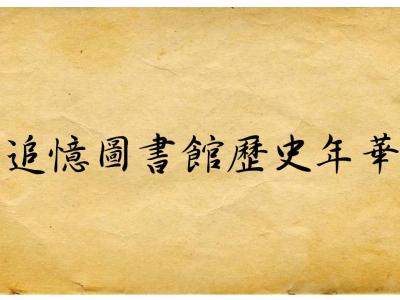 追憶圖書館歷史年華